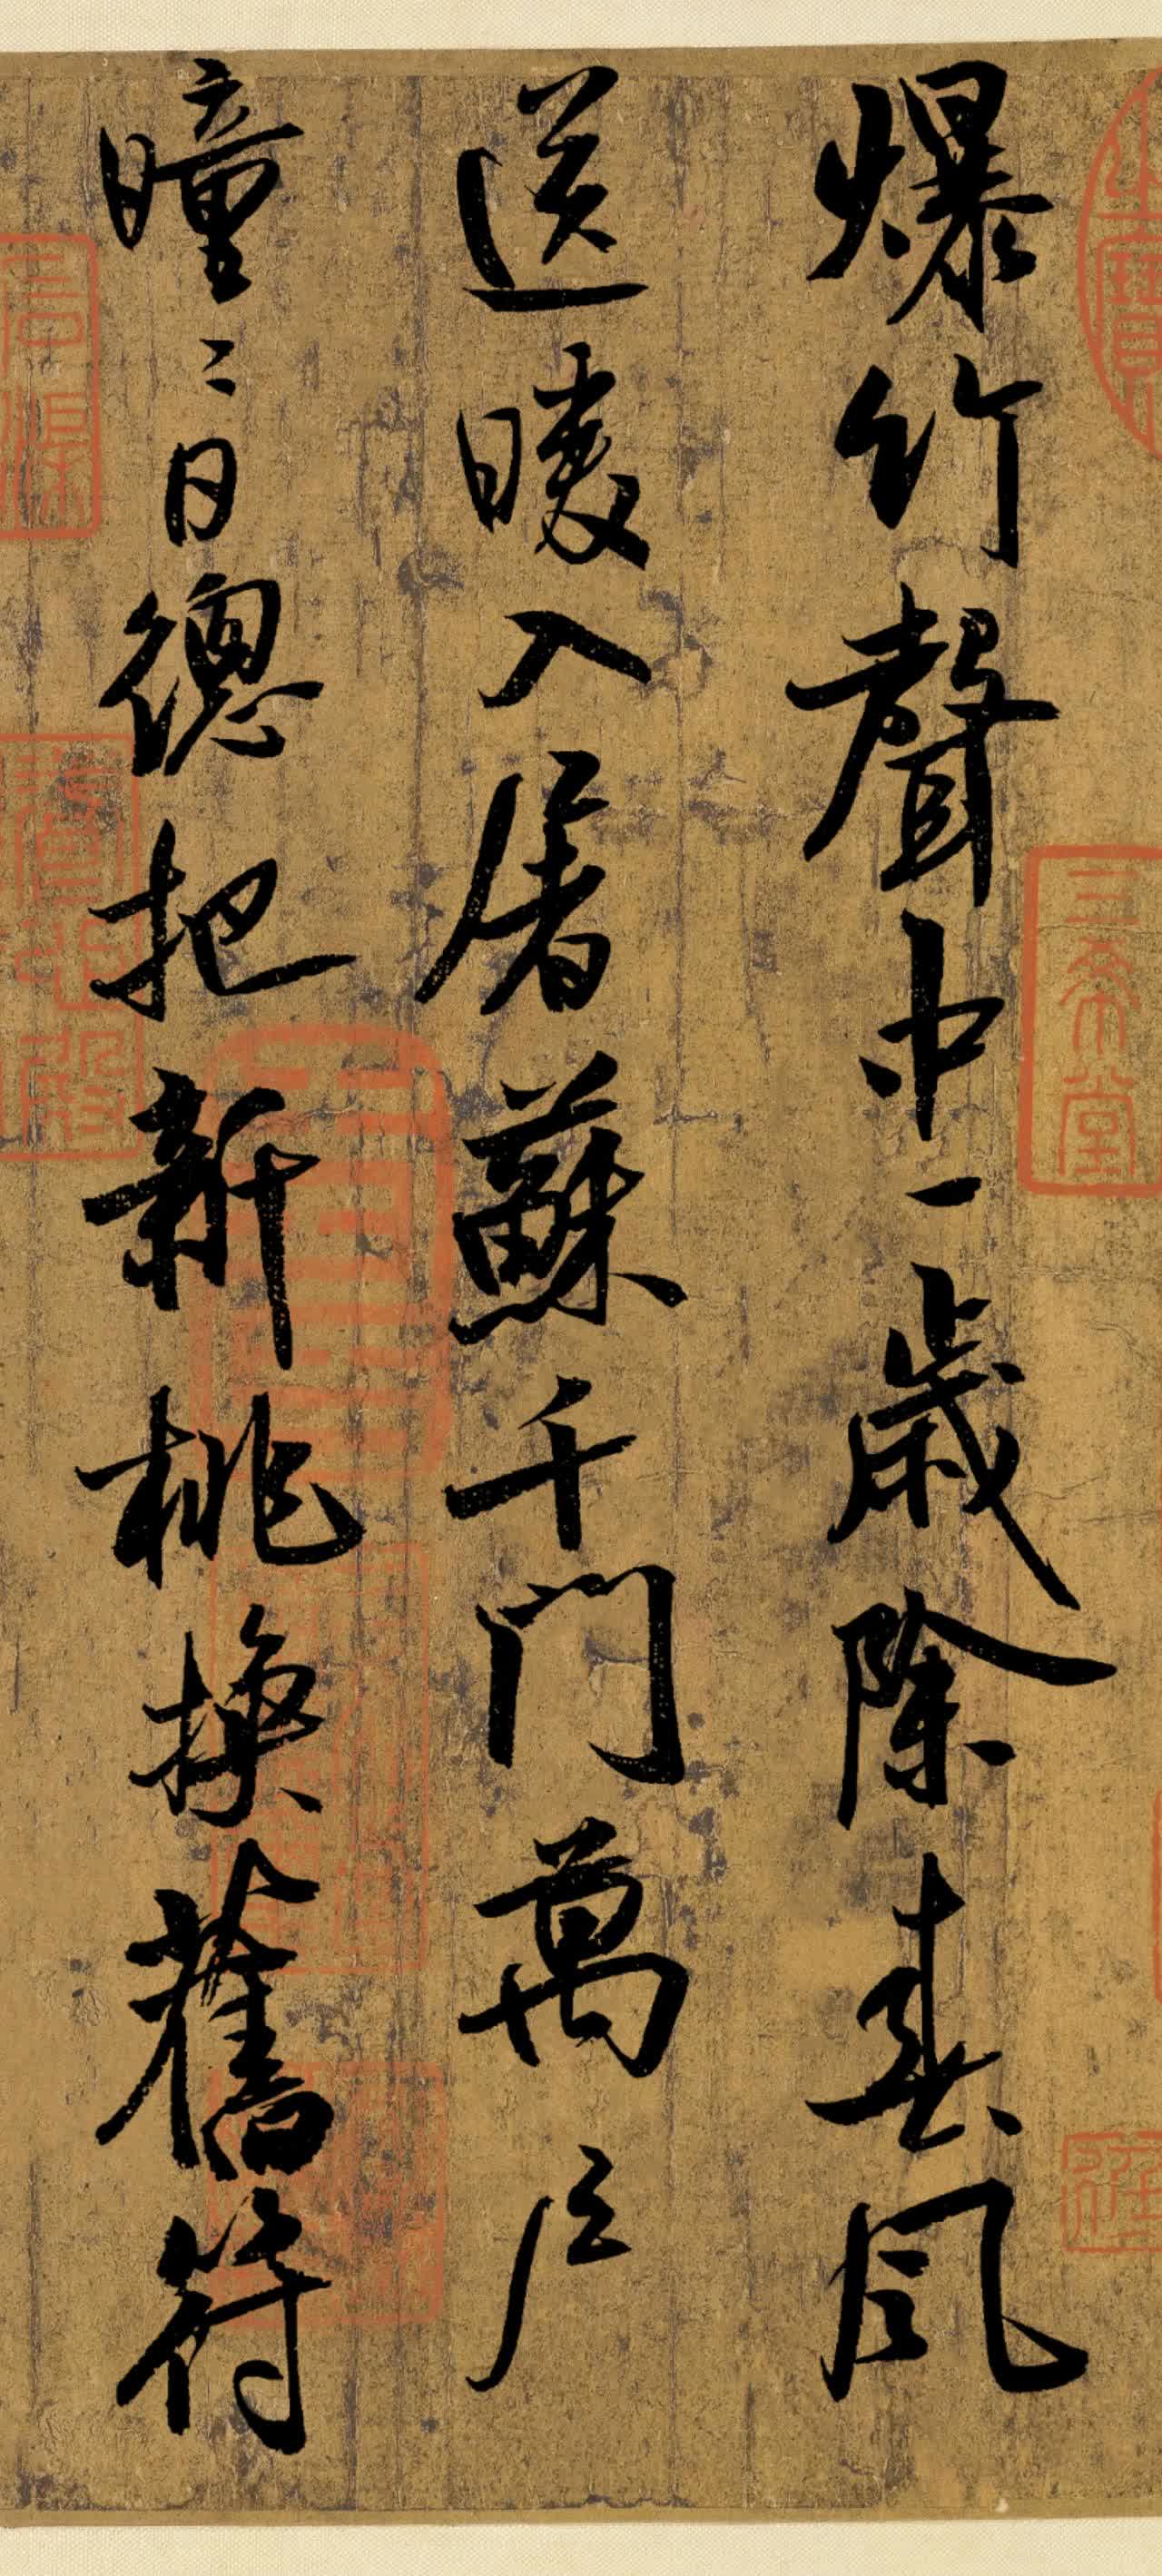 爆竹聲中一歲除春風
送暖入屠蘇千門萬戶
曈〻日總把新桃換舊符
三希堂